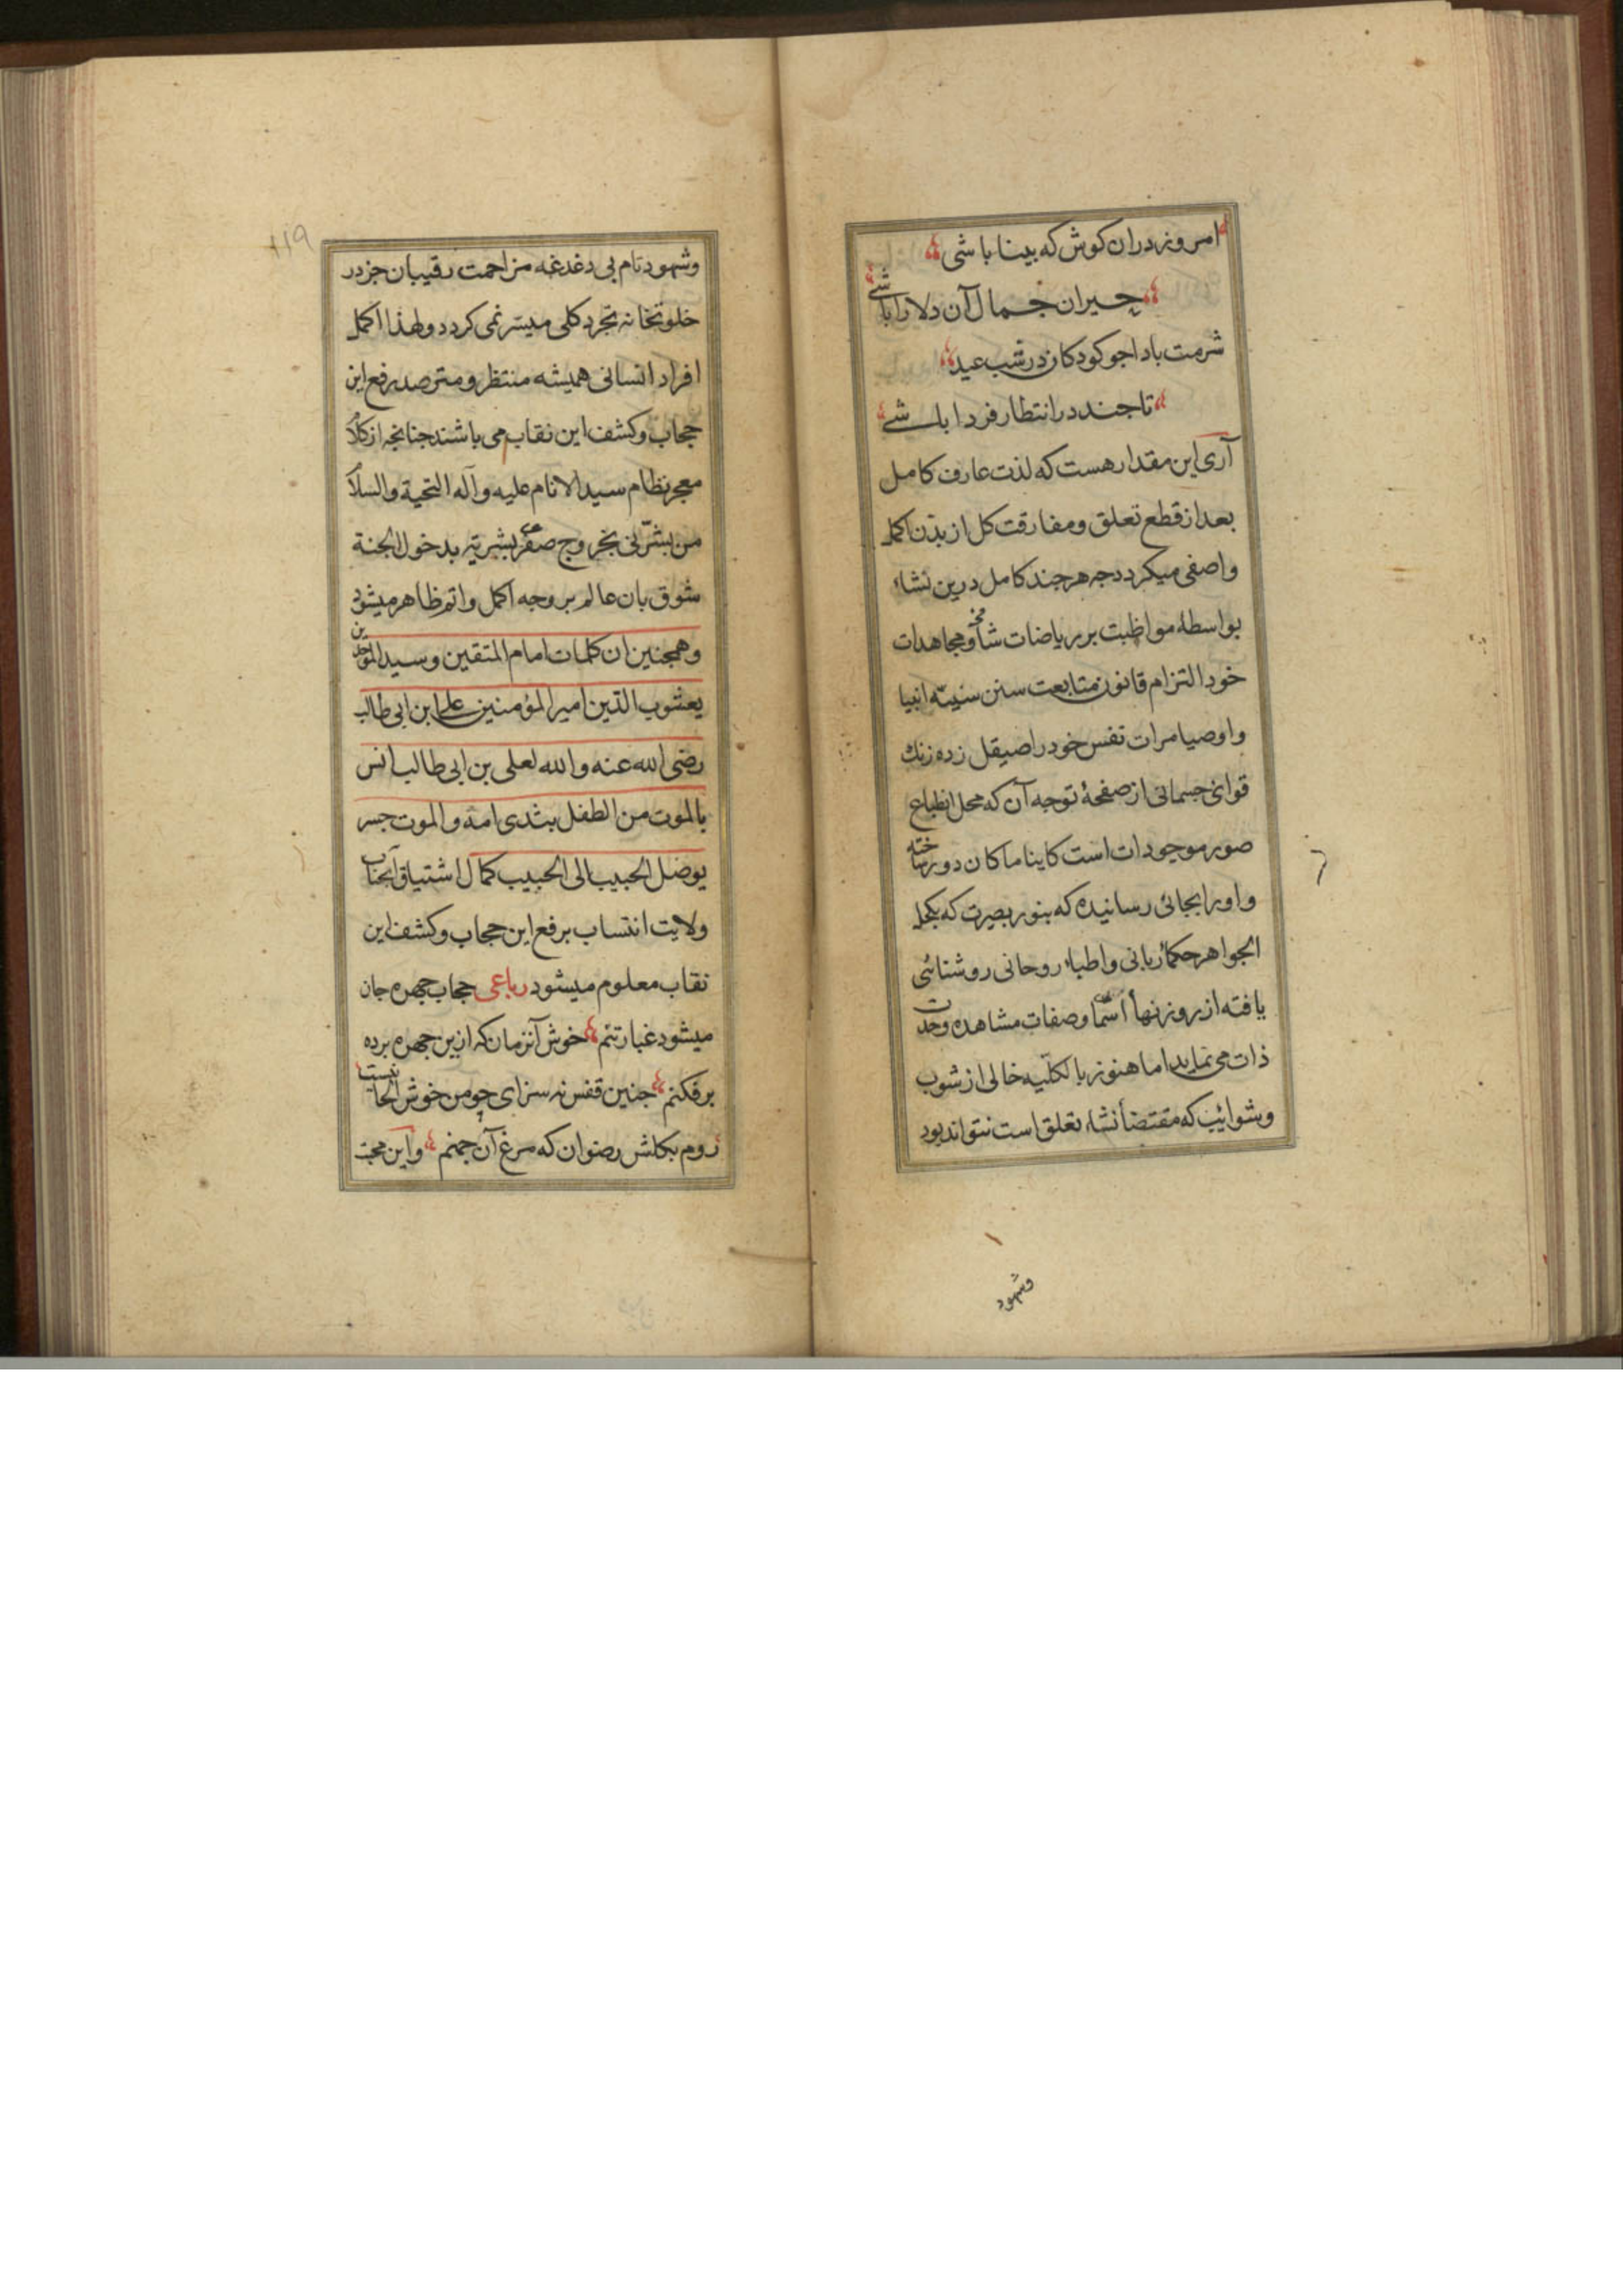 امروز دران کوش که بینا باشی
حیران جمال آن دلارا باشی
شرمت بادا جو کودکان در شب عید
تا جند در انتظار فردا باشی
آری این مقدار هست که لذت عارف کامل
بعد از قطع تعلق و مفارقت کل از بدن اکمل
واصفی میکردد جه هر جند کامل درین نشاء
بواسطهٔ مواظبت بر ریاضات شاقه و مجاهدات
خود التزام قانون متابعت سنن سنیّه انبیا
و اوصیا مرات نفس خود را صیقل زده زنك
قوای جسمانی از صفحهٔ توجه آن که محل انطباع
صور موجودات است کاینا ما کان دور ساخته
و او را بجائی رسانیده که بنور بصیرت که بکحل
الجواهر حکماء ربانی و اطباء روحانی روشنائی
یافته از روزنهاء اسما و صفات مشاهده وحدت
ذات می نماید اما هنوز بالکلّیه خالی از شوب
و شوائب که مقتضاء نشاء تعلق است نتواند بود
وشهود
۱۱۹
وشهود تام بی دغدغه مزاحمت رقیبان جز در
خلوتخانه تجرد کلی میسّر نمی کردد ولهذا اکمل
افراد انسانی همیشه منتظر و مترصد رفع این
حجاب و کشف این نقاب می باشند جنانجه از کلام
معجز نظام سید الانام علیه و آله التحیة والسلام
من بشّرنی بخروج صفر بشرته بدخول الجنة
شوق بان عالم بر وجه اکمل و اتم ظاهر میشود
و همجنین ان کلمات امام المتقین وسید الموحدین
یعسوب الدین امیر المؤمنین علی ابن ابی طالب
رضی الله عنه والله لعلی بن ابی طالب انس
بالموت من الطفل بثدی امه والموت جسر
یوصل الحبیب الی الحبیب کمال اشتیاق آنجناب
ولایت انتساب برفع این حجاب و کشف این
نقاب معلوم میشود رباعی حجاب جهره جان
میشود غبار تنم خوش آنزمان که ازین جهره برده
برفکنم جنین قفس نه سزای چو من خوش الحانیست
روم بکلشن رضوان که مرغ آن جمنم و این محبت